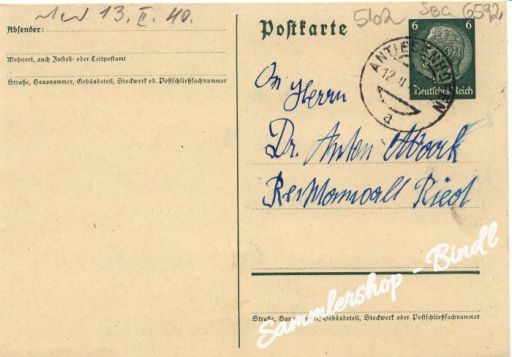 13. II. 40.
Absender:
Wohnort, auch Zustell- oder Leitpostamt
Straße, Hausnummer, Gebäudeteil, Stockwerk od. Postschließfachnummer
Postkarte
5102
SBG 6592
6 6
Deutsches Reich
ANTIESENHOFEN
12. II
a
An Herrn
Dr. Anton
Rechtsanwalt Ried
Sammlershop - Bindl
Straße, Gebäudeteil, Stockwerk oder Postschließfachnummer